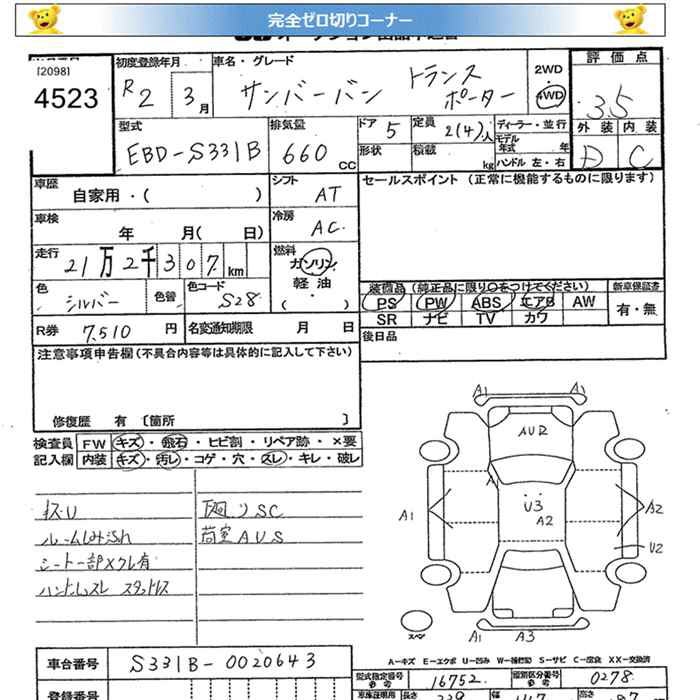 完全ゼロ切りコーナー
[2098]
4523
初度登録年月
R2 3月
車名・グレード
サンバーバン トランスポーター
2WD
・
4WD
評価点
3.5
外装 内装
D C
型式
EBD-S331B
排気量
660 CC
ドア 5
形状
定員 2(4)人
積載 kg
ディーラー・並行
モデル年式 年
ハンドル 左・右
車歴
自家用・( )
シフト AT
セールスポイント (正常に機能するものに限ります)
車検
年 月( 日)
冷房 AC
走行
21万2千307km
燃料
ガソリン
軽油
( ・ )
色
シルバー
色替
色コード
S28
装備品 (純正品に限り○をつけてください)
PS PW ABS エアB AW
SR ナビ TV カワ
新車保証書
有・無
R券 7,510 円
名変通知期限 月 日
後日品
注意事項申告欄(不具合内容等は具体的に記入して下さい)
修復歴 有 〔箇所 〕
検査員
記入欄
FW キズ・飛石・ヒビ割・リペア跡・×要
内装 キズ・汚レ・コゲ・穴・スレ・キレ・破レ
キズU
廻りSC
荷室AUS
シート一部スレ有
ハンドルスレ
A1 A1
AU2
U3
A2
A1
A2
U2
スペン
A1 A3
A-キズ E-エクボ U-凹み W-補修跡 S-サビ C-腐食 XX-交換済
車台番号 S331B-0020643
型式指定番号
参考
16752
類別区分番号
参考
0278
登録番号
長さ
幅
高さ